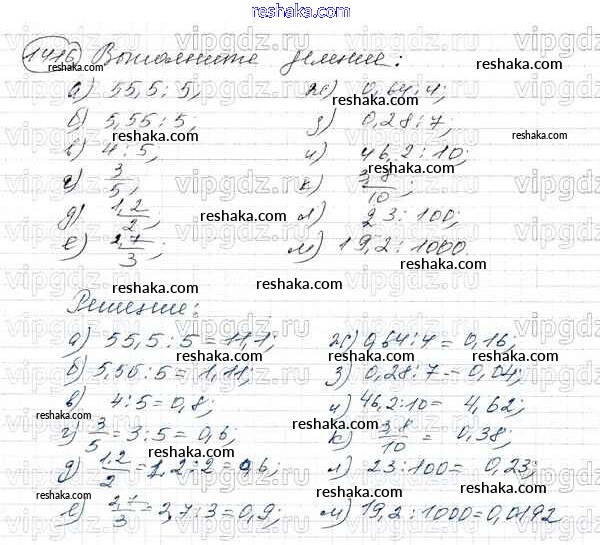 reshaka.com
1416 Выполните деление:
а) 55,5 : 5; ж) 0,64 : 4;
б) 5,55 : 5; з) 0,28 : 7;
в) 4 : 5; и) 46,2 : 10;
г) 3/5; к) 3,8/10;
д) 1,2/2; л) 23 : 100;
е) 2,7/3; м) 19,2 : 1000
Решение:
а) 55,5 : 5 = 11,1; ж) 0,64 : 4 = 0,16;
б) 5,55 : 5 = 1,11; з) 0,28 : 7 = 0,04;
в) 4 : 5 = 0,8; и) 46,2 : 10 = 4,62;
г) 3/5 = 3 : 5 = 0,6; к) 3,8/10 = 0,38;
д) 1,2/2 = 1,2 : 2 = 0,6; л) 23 : 100 = 0,23;
е) 2,7/3 = 2,7 : 3 = 0,9; м) 19,2 : 1000 = 0,0192
vipgdz.ru
reshaka.com